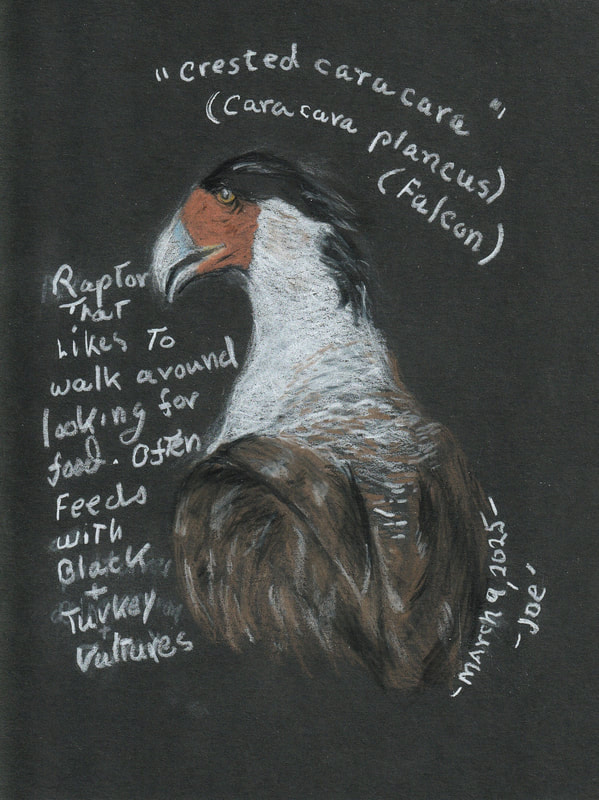 "Crested caracara"
(Caracara plancus)
(Falcon)
Raptor
That
Likes To
walk around
looking for
food. Often
Feeds
with
Black
+
Turkey
+
Vultures
-March 9, 2025-
-Joe-